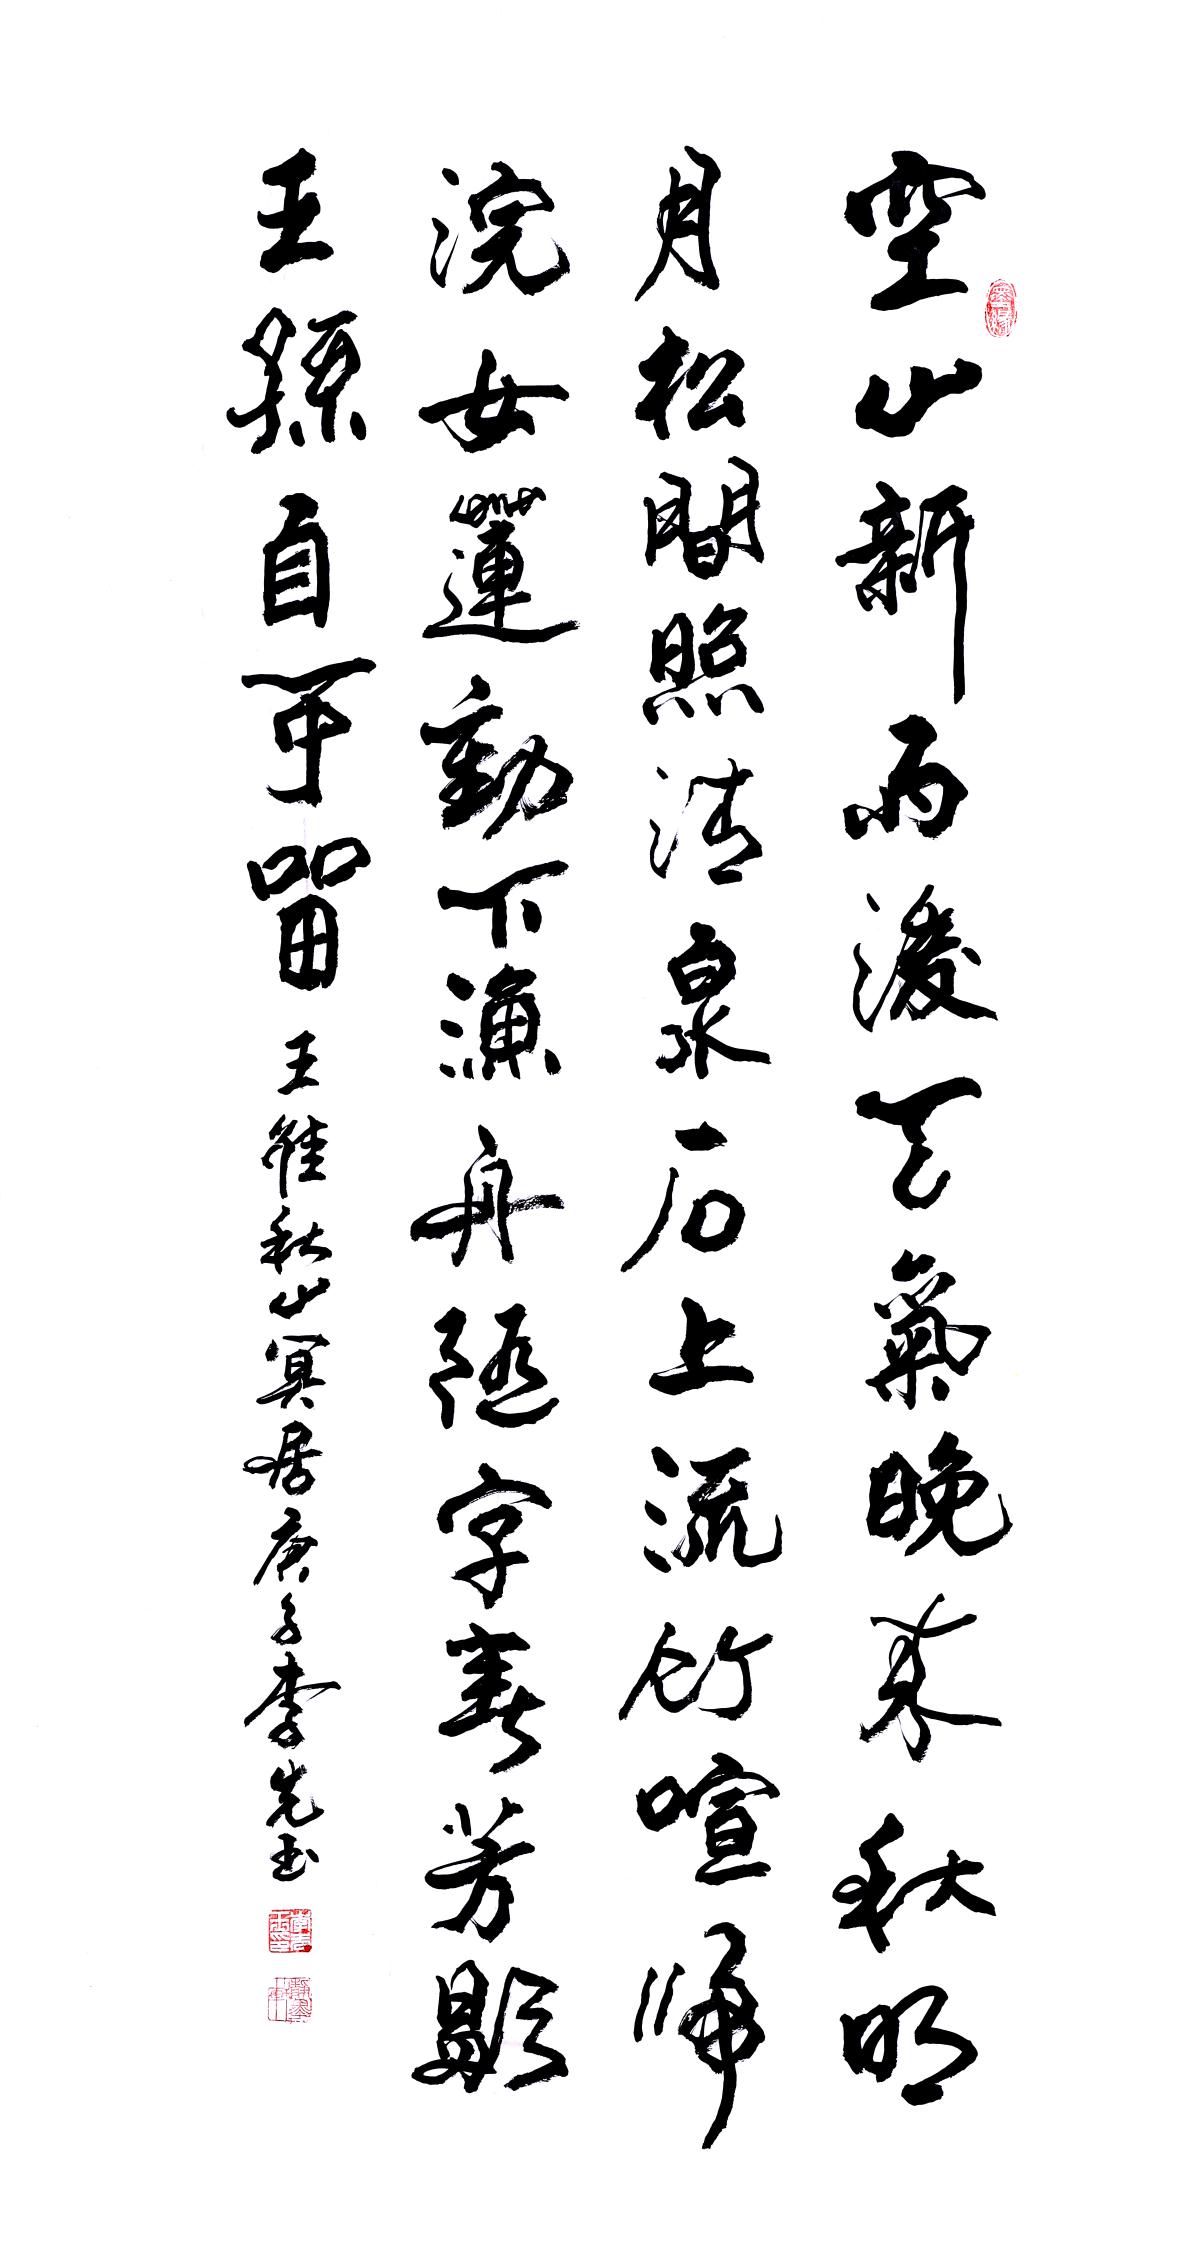 空山新雨後天氣晚來秋明
月松間照清泉石上流竹喧歸
浣女蓮動下漁舟隨意春芳歇
王孫自可留 王維秋山冥居庚子李先玉